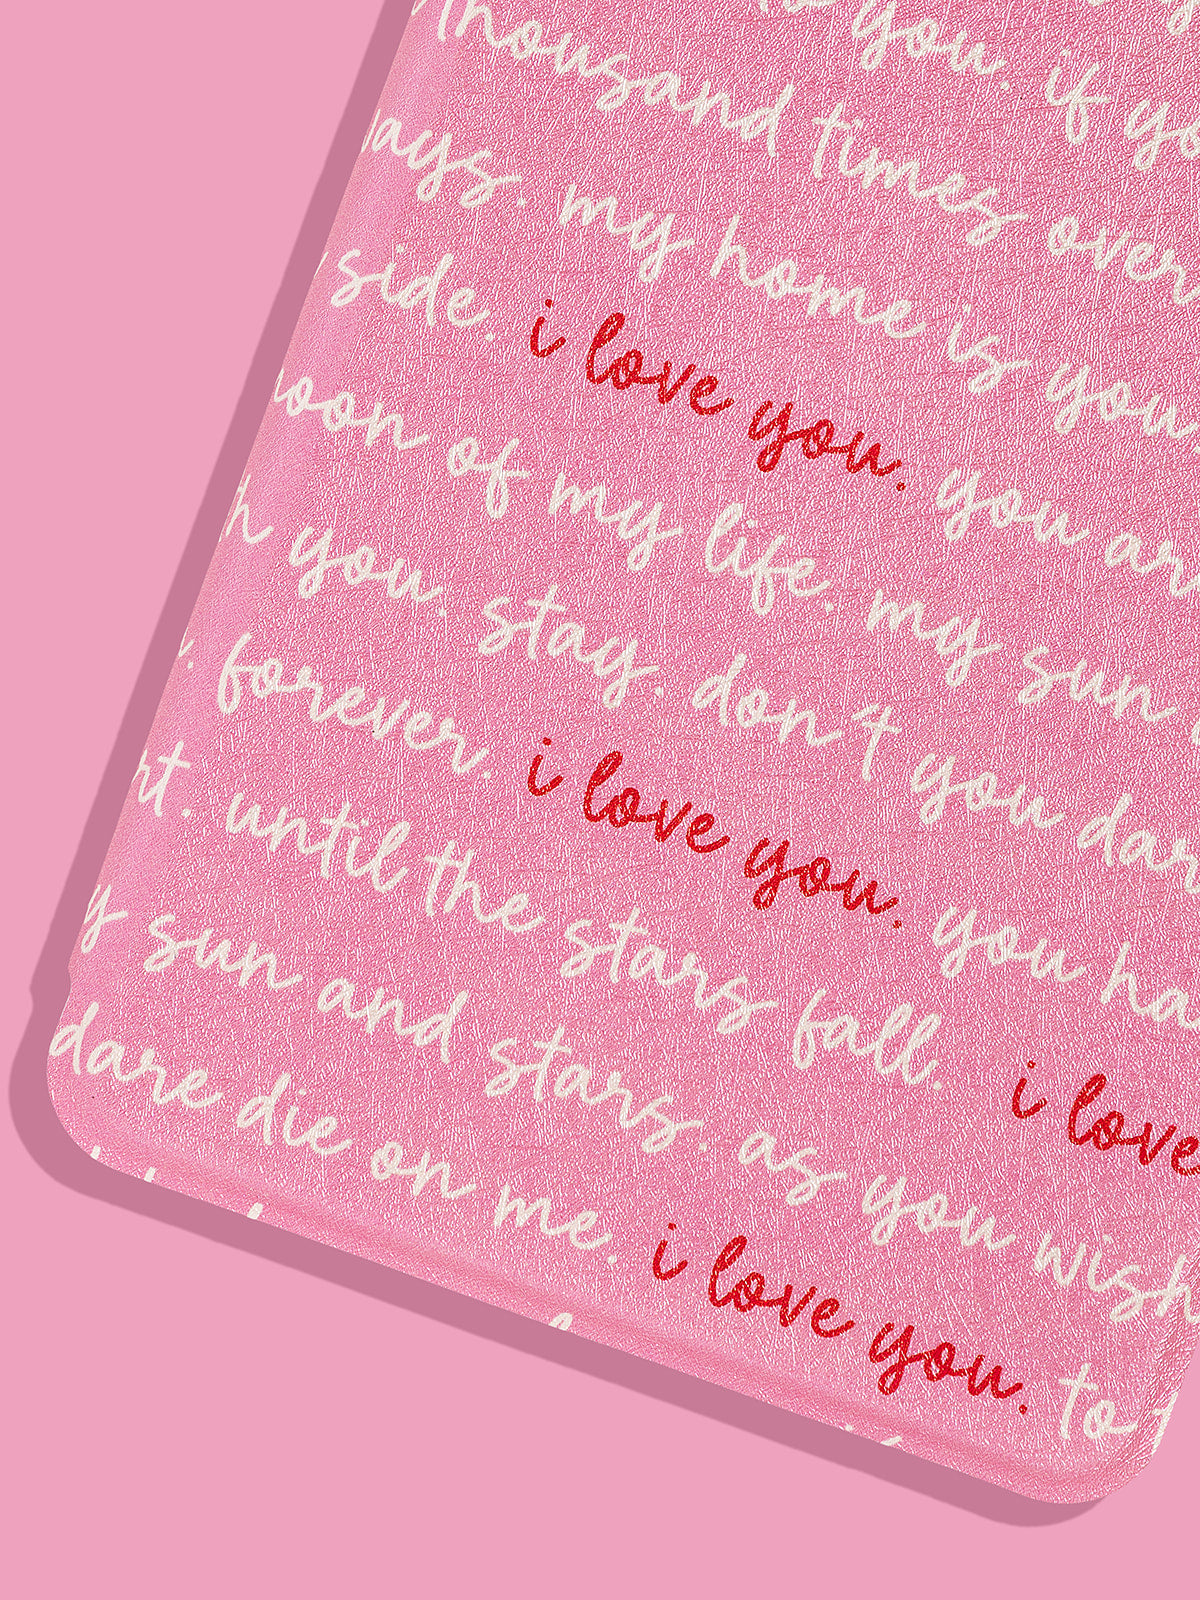 you. if
thousand times over
my home is you.
side. i love you. you
of my life. my sun
you. stay. don't you
forever. i love you. you
until the stars fall. i love
sun and stars. as you wish
dare die on me. i love you. to